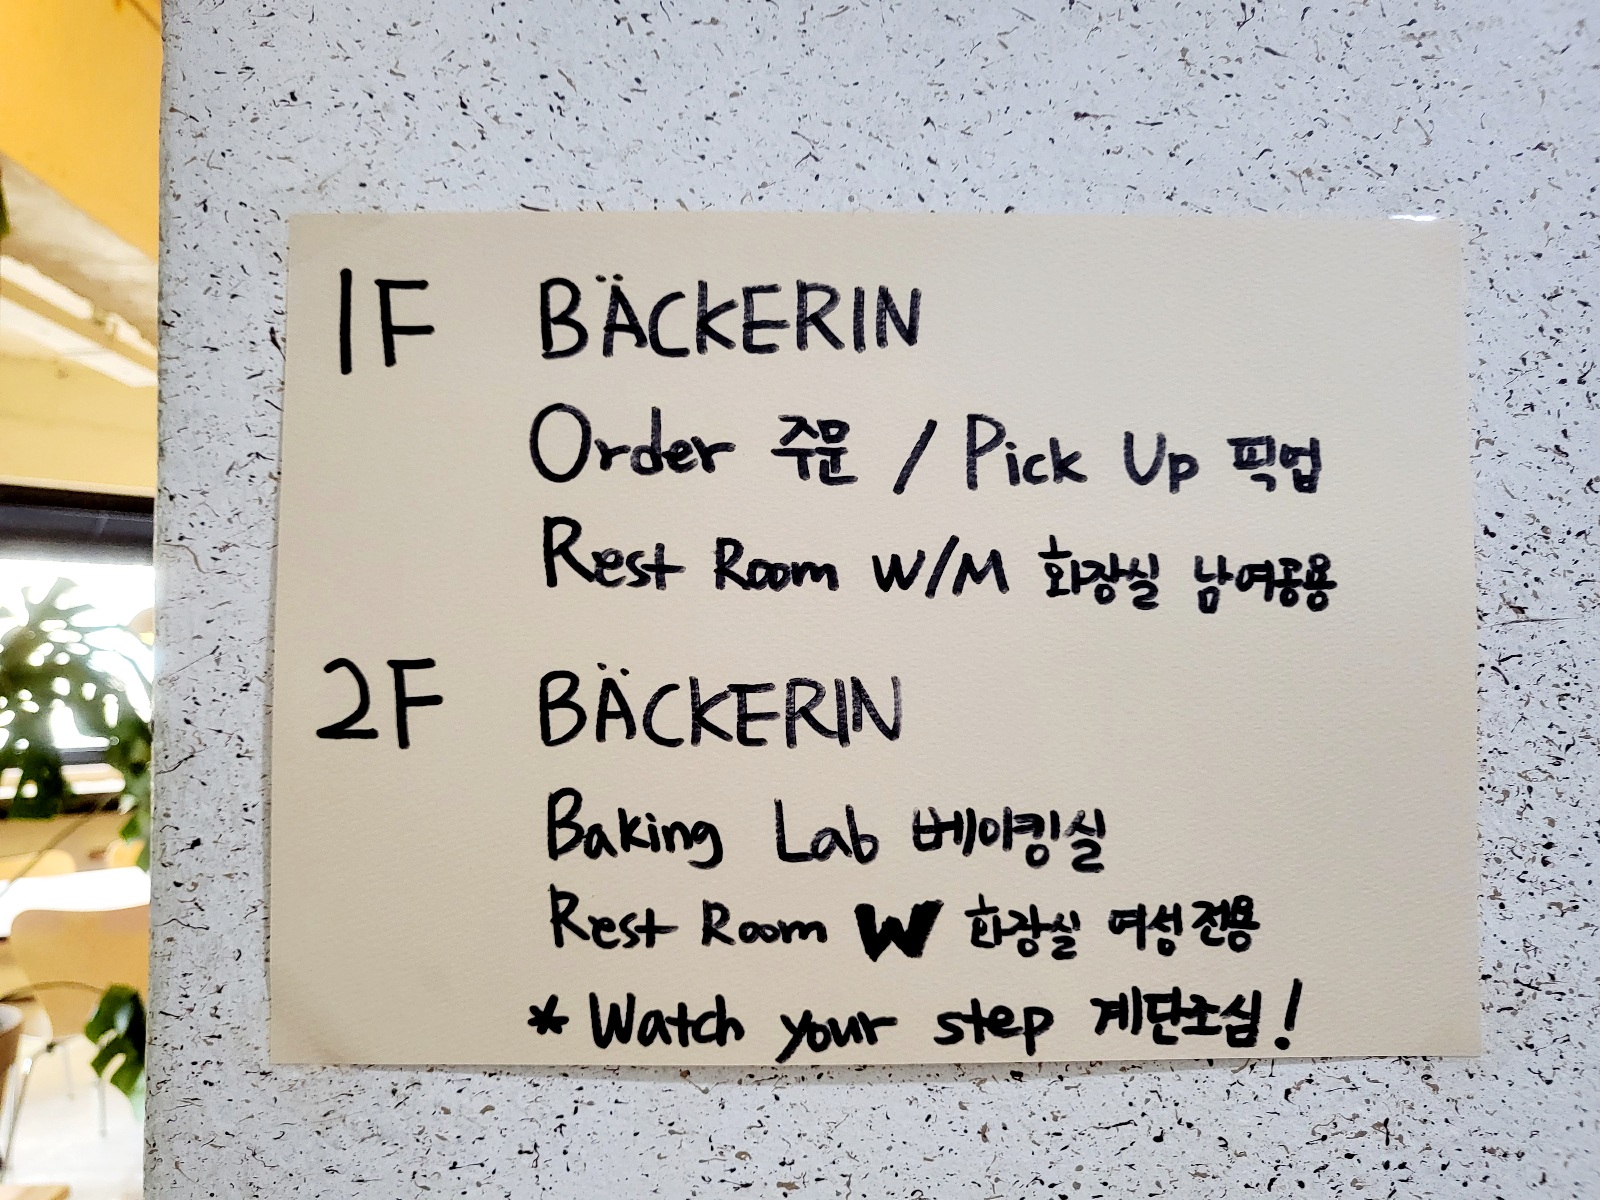 1F BÄCKERIN
Order 주문 / Pick Up 픽업
Rest Room W/M 화장실 남여공용
2F BÄCKERIN
Baking Lab 베이킹실
Rest Room W 화장실 여성전용
* Watch your step 계단조심!